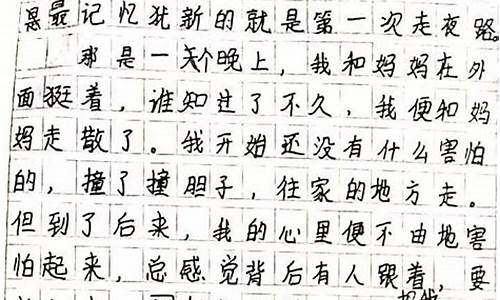 是最记忆犹新的就是第一次走夜路。
那是一个晚上，我和妈妈在外
面逛着，谁知过了不久，我便和妈
妈走散了。我开始还没有什么害怕
的，撞了撞胆子，往家的地方走。
但到了后来，我的心里便不由地害
怕起来，总感觉背后有人跟着，要